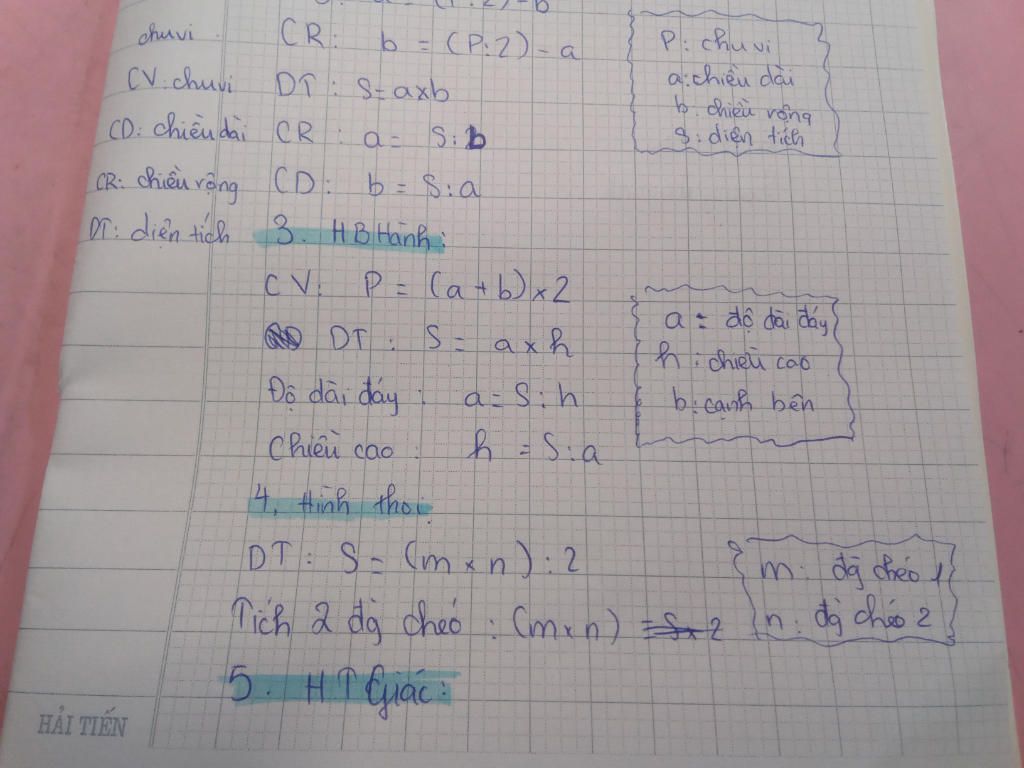 : a = (P:2) - b
chu vi CR: b = (P:2) - a
P: chu vi
CV: chu vi DT: S = a x b
a: chiều dài
b: chiều rộng
CD: chiều dài CR: a = S:b
S: diện tích
CR: chiều rộng CD: b = S:a
DT: diện tích 3. HB Hành:
CV: P = (a + b) x 2
a = độ dài đáy
DT: S = a x h
h: chiều cao
Độ dài đáy: a = S:h
b: cạnh bên
Chiều cao: h = S:a
4. Hình thoi:
DT: S = (m x n) : 2
m: đg chéo 1
Tích 2 đg chéo: (m x n) = S x 2
n: đg chéo 2
5. HT Giác:
HẢI TIẾN